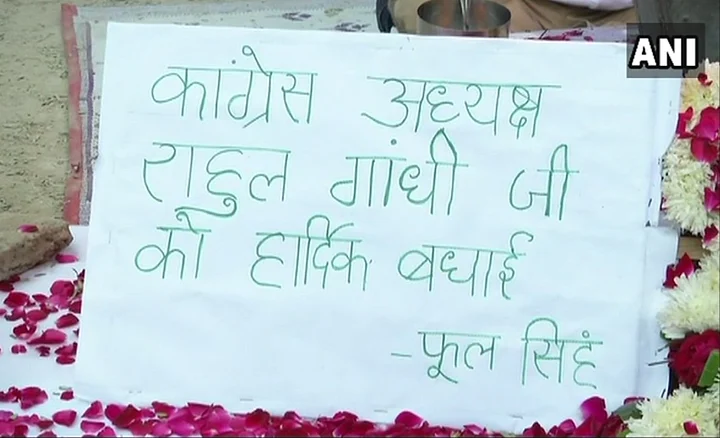 ANI
कांग्रेस अध्यक्ष
राहुल गांधी जी
को हार्दिक बधाई
- फूल सिहं